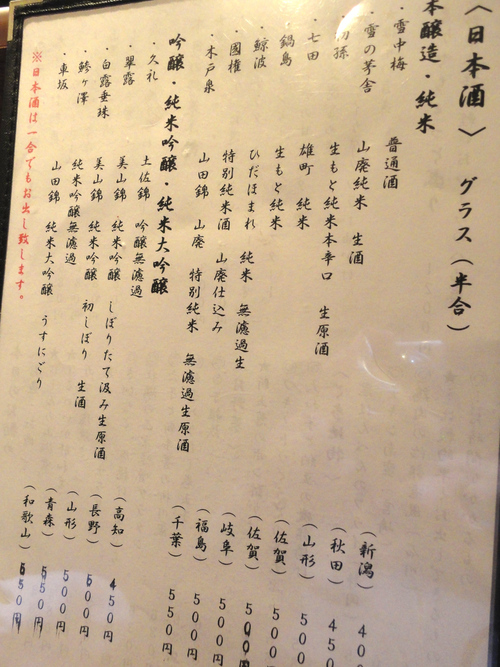 〈日本酒〉 グラス(半合)
本醸造・純米
・雪中梅 普通酒 (新潟) 40
・雪の茅舎 山廃純米 生酒 (秋田) 450
・初孫 生もと純米本辛口 生原酒 (山形) 500
・七田 雄町 純米 (佐賀) 500
・鍋島 生もと 純米 (佐賀) 500円
・鯨波 ひだほまれ 純米 無濾過生 (岐阜) 500円
・國権 特別純米酒 山廃仕込み (福島) 500円
・木戸泉 山田錦 山廃 特別純米 無濾過生原酒 (千葉) 550円
吟醸・純米吟醸・純米大吟醸
・久礼 土佐錦 吟醸無濾過 (高知) 450円
・翠露 美山錦 純米吟醸 しぼりたて汲み生原酒 (長野) 500円
・白露垂珠 美山錦 純米吟醸 初しぼり 生酒 (山形) 500円
・鯵ヶ澤 純米吟醸無濾過 (青森) 550円
・車坂 山田錦 純米大吟醸 うすにごり (和歌山) 50円
※日本酒は一合でもお出し致します。